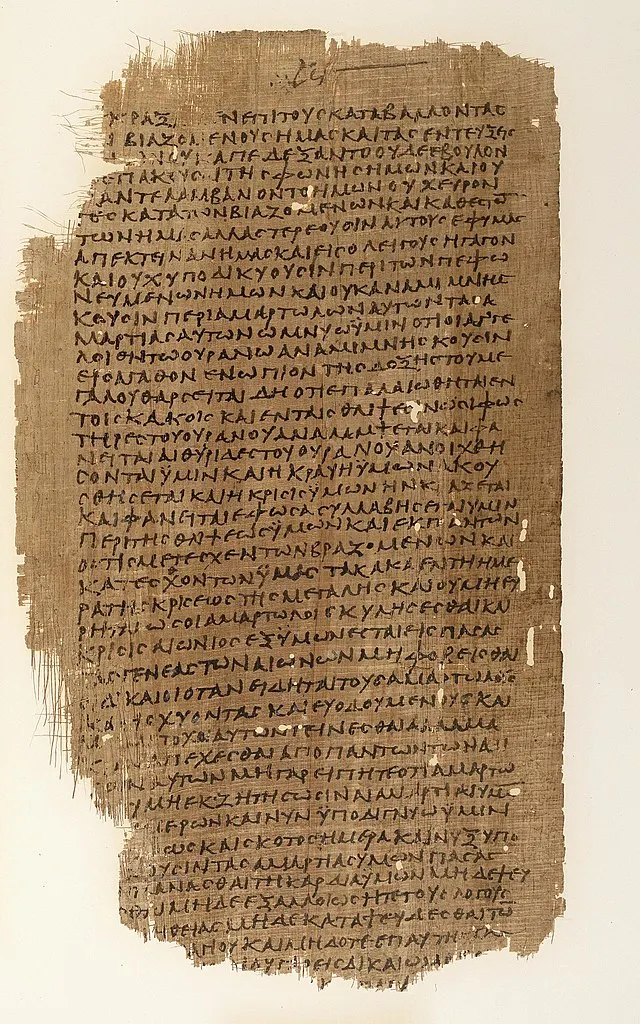 ΚΡΑΞ ΝΕΠΙΤΟΥΣΚΑΤΑΒΑΛΛΟΝΤΑΣ
ΒΙΑΖΟΜΕΝΟΥΣΗΜΑΣΚΑΙΤΑΣΕΝΤΕΥΞΕΙΣ
ΑΠΕΔΕΞΑΝΤΟΟΥΔΕΕΒΟΥΛΟΝ
ΤΗΣΦΩΝΗΣΗΜΩΝΚΑΙΟΥ
ΑΝΤΕΛΑΜΒΑΝΟΝΤΟΗΜΩΝΟΥΧΕΥΡΟΝ
ΤΕΣΚΑΤΑΤΩΝΒΙΑΖΟΜΕΝΩΝΚΑΙΚΑΘΕΣΤ
ΤΩΝΗΜΑΣΑΛΛΑΣΤΕΡΕΟΥΣΙΝΑΥΤΟΥΣΕΦΥΜΑΣ
ΑΠΕΚΤΕΙΝΑΝΗΜΑΣΚΑΙΕΙΣΟΛΕΙΓΟΥΣΗΓΑΓΟΝ
ΚΑΙΟΥΧΥΠΟΔΙΚΥΟΥΣΙΝΠΕΡΙΤΩΝΠΕΦΩ
ΝΕΥΜΕΝΩΝΗΜΩΝΚΑΙΟΥΚΑΝΑΜΙΜΝΗΣ
ΚΟΥΣΙΝΠΕΡΙΑΜΑΡΤΩΛΩΝΑΥΤΩΝΤΑΣΑ
ΜΑΡΤΙΑΣΑΥΤΩΝΟΜΝΥΩΫΜΙΝΟΤΙΟΙΑΓΓΕ
ΛΟΙΕΝΤΩΟΥΡΑΝΩΑΝΑΜΙΜΝΗΣΚΟΥΣΙΝ
ΕΙΣΑΓΑΘΟΝΕΝΩΠΙΟΝΤΗΣΔΟΞΗΣΤΟΥΜΕ
ΓΑΛΟΥΘΑΡΣΕΙΤΑΙΔΗΟΤΙΕΠΑΛΑΙΩΘΗΤΑΙΕΝ
ΤΟΙΣΚΑΚΟΙΣΚΑΙΕΝΤΑΙΣΘΛΙΨΕΣΙΝΩΣΙΦΩΣ
ΤΗΡΕΣΤΟΥΟΥΡΑΝΟΥΑΝΑΛΑΜΨΕΤΑΙΚΑΙΦΑ
ΝΕΙΤΑΙΑΙΘΥΡΙΔΕΣΤΟΥΟΥΡΑΝΟΥΑΝΟΙΧΘΗ
ΣΟΝΤΑΙΫΜΙΝΚΑΙΗΚΡΑΥΓΗΫΜΩΝΑΚΟΥ
ΣΘΗΣΕΤΑΙΚΑΙΗΚΡΙΣΙΣΫΜΩΝΗΝΚΡΑΖΕΤΑΙ
ΚΑΙΦΑΝΕΙΤΑΙΕΦΟΣΑΣΥΛΛΑΒΗΣΕΤΑΙΥΜΙΝ
ΠΕΡΙΤΗΣΘΛΙΨΕΩΣΫΜΩΝΚΑΙΕΚΠΑΝΤΩΝ
ΟΣΤΙΣΜΕΤΕΣΧΕΝΤΩΝΒΙΑΖΟΜΕΝΩΝΚΑΙ
ΚΑΤΕΣΧΟΝΤΩΝΫΜΑΣΤΑΚΑΚΑΕΝΤΗΗΜΕ
ΡΑΤΗΣΚΡΙΣΕΩΣΤΗΣΜΕΓΑΛΗΣΚΑΙΟΥΜΗΕΥ
ΡΗΤΑΙΩΣΟΙΑΜΑΡΤΩΛΟΙΣΚΥΛΗΣΕΣΘΑΙΚΑΙ
ΚΡΙΣΙΣΑΙΩΝΙΟΣΕΞΥΜΩΝΕΣΤΑΙΕΙΣΠΑΣΑΣ
ΓΕΝΕΑΣΤΩΝΑΙΩΝΩΝΜΗΦΟΒΕΙΣΘΑΙ
ΔΙΚΑΙΟΙΟΤΑΝΕΙΔΗΤΑΙΤΟΥΣΑΜΑΡΤΩΛΟΥΣ
ΚΑΤΙΣΧΥΟΝΤΑΣΚΑΙΕΥΟΔΟΥΜΕΝΟΥΣΚΑΙ
ΑΥΤΩΝΓΕΙΝΕΣΘΑΙΑΛΛΑΜΑ
ΑΠΕΧΕΣΘΑΙΑΠΟΠΑΝΤΩΝΤΩΝΑΔΙ
ΑΥΤΩΝΜΗΓΑΡΕΙΠΗΤΕΟΤΙΑΜΑΡΤΩ
ΜΗΕΚΖΗΤΗΣΩΣΙΝΑΙΑΜΑΡΤΙΑΙΥΜΩ
ΜΕΡΩΝΚΑΙΝΥΝΫΠΟΔΙΓΝΥΩΫΜΙΝ
ΦΩΣΚΑΙΣΚΟΤΟΣΗΜΕΡΑΚΑΙΝΥΞΥΠΟ
ΟΥΣΙΝΤΑΣΑΜΑΡΤΙΑΣΥΜΩΝΠΑΣΑΣ
ΠΛΑΝΑΣΘΑΙΤΗΚΑΡΔΙΑΥΜΩΝΜΗΔΕΨΕΥ
ΜΗΔΕΕΞΑΛΛΟΙΩΣΗΤΕΤΟΥΣΛΟΓΟΥΣ
ΘΕΙΑΣΜΗΔΕΚΑΤΑΨΕΥΔΕΣΘΑΙΤΩ
ΓΙΟΥΚΑΙΜΗΔΟΤΕΕΠΑΥ
ΔΙΚΑΙΩ